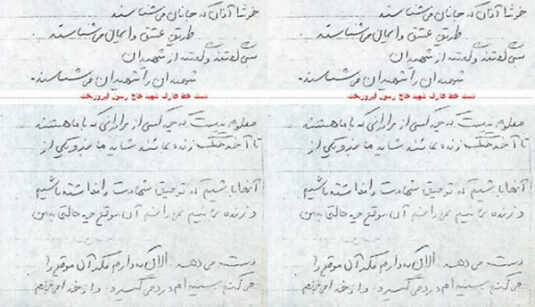 خوشا آنان که جانان می شناسند
طریق عشق و ایمان می شناسند
بسی گفتند و گفتند از شهیدان
شهیدان را شهیدان می شناسند.
دست خط عارف شهید حاج رسول فیروزبخت
معلوم نیست که چه کسی از برادرانی که با ما هستند
تا آخر جنگ زنده بمانند شاید ما هم یکی از
آنها باشیم که توفیق شهادت را نداشته باشیم
و زنده بمانیم نمی دانم آن موقع چه حالتی بمن
دست می دهد. الان که دارم فکر آن موقع را
می کنم سینه ام درد می گیرد، و از خدا می خواهم
خوشا آنان که جانان می شناسند
طریق عشق و ایمان می شناسند
بسی گفتند و گفتند از شهیدان
شهیدان را شهیدان می شناسند.
دست خط عارف شهید حاج رسول فیروزبخت
معلوم نیست که چه کسی از برادرانی که با ما هستند
تا آخر جنگ زنده بمانند شاید ما هم یکی از
آنها باشیم که توفیق شهادت را نداشته باشیم
و زنده بمانیم نمی دانم آن موقع چه حالتی بمن
دست می دهد. الان که دارم فکر آن موقع را
می کنم سینه ام درد می گیرد، و از خدا می خواهم